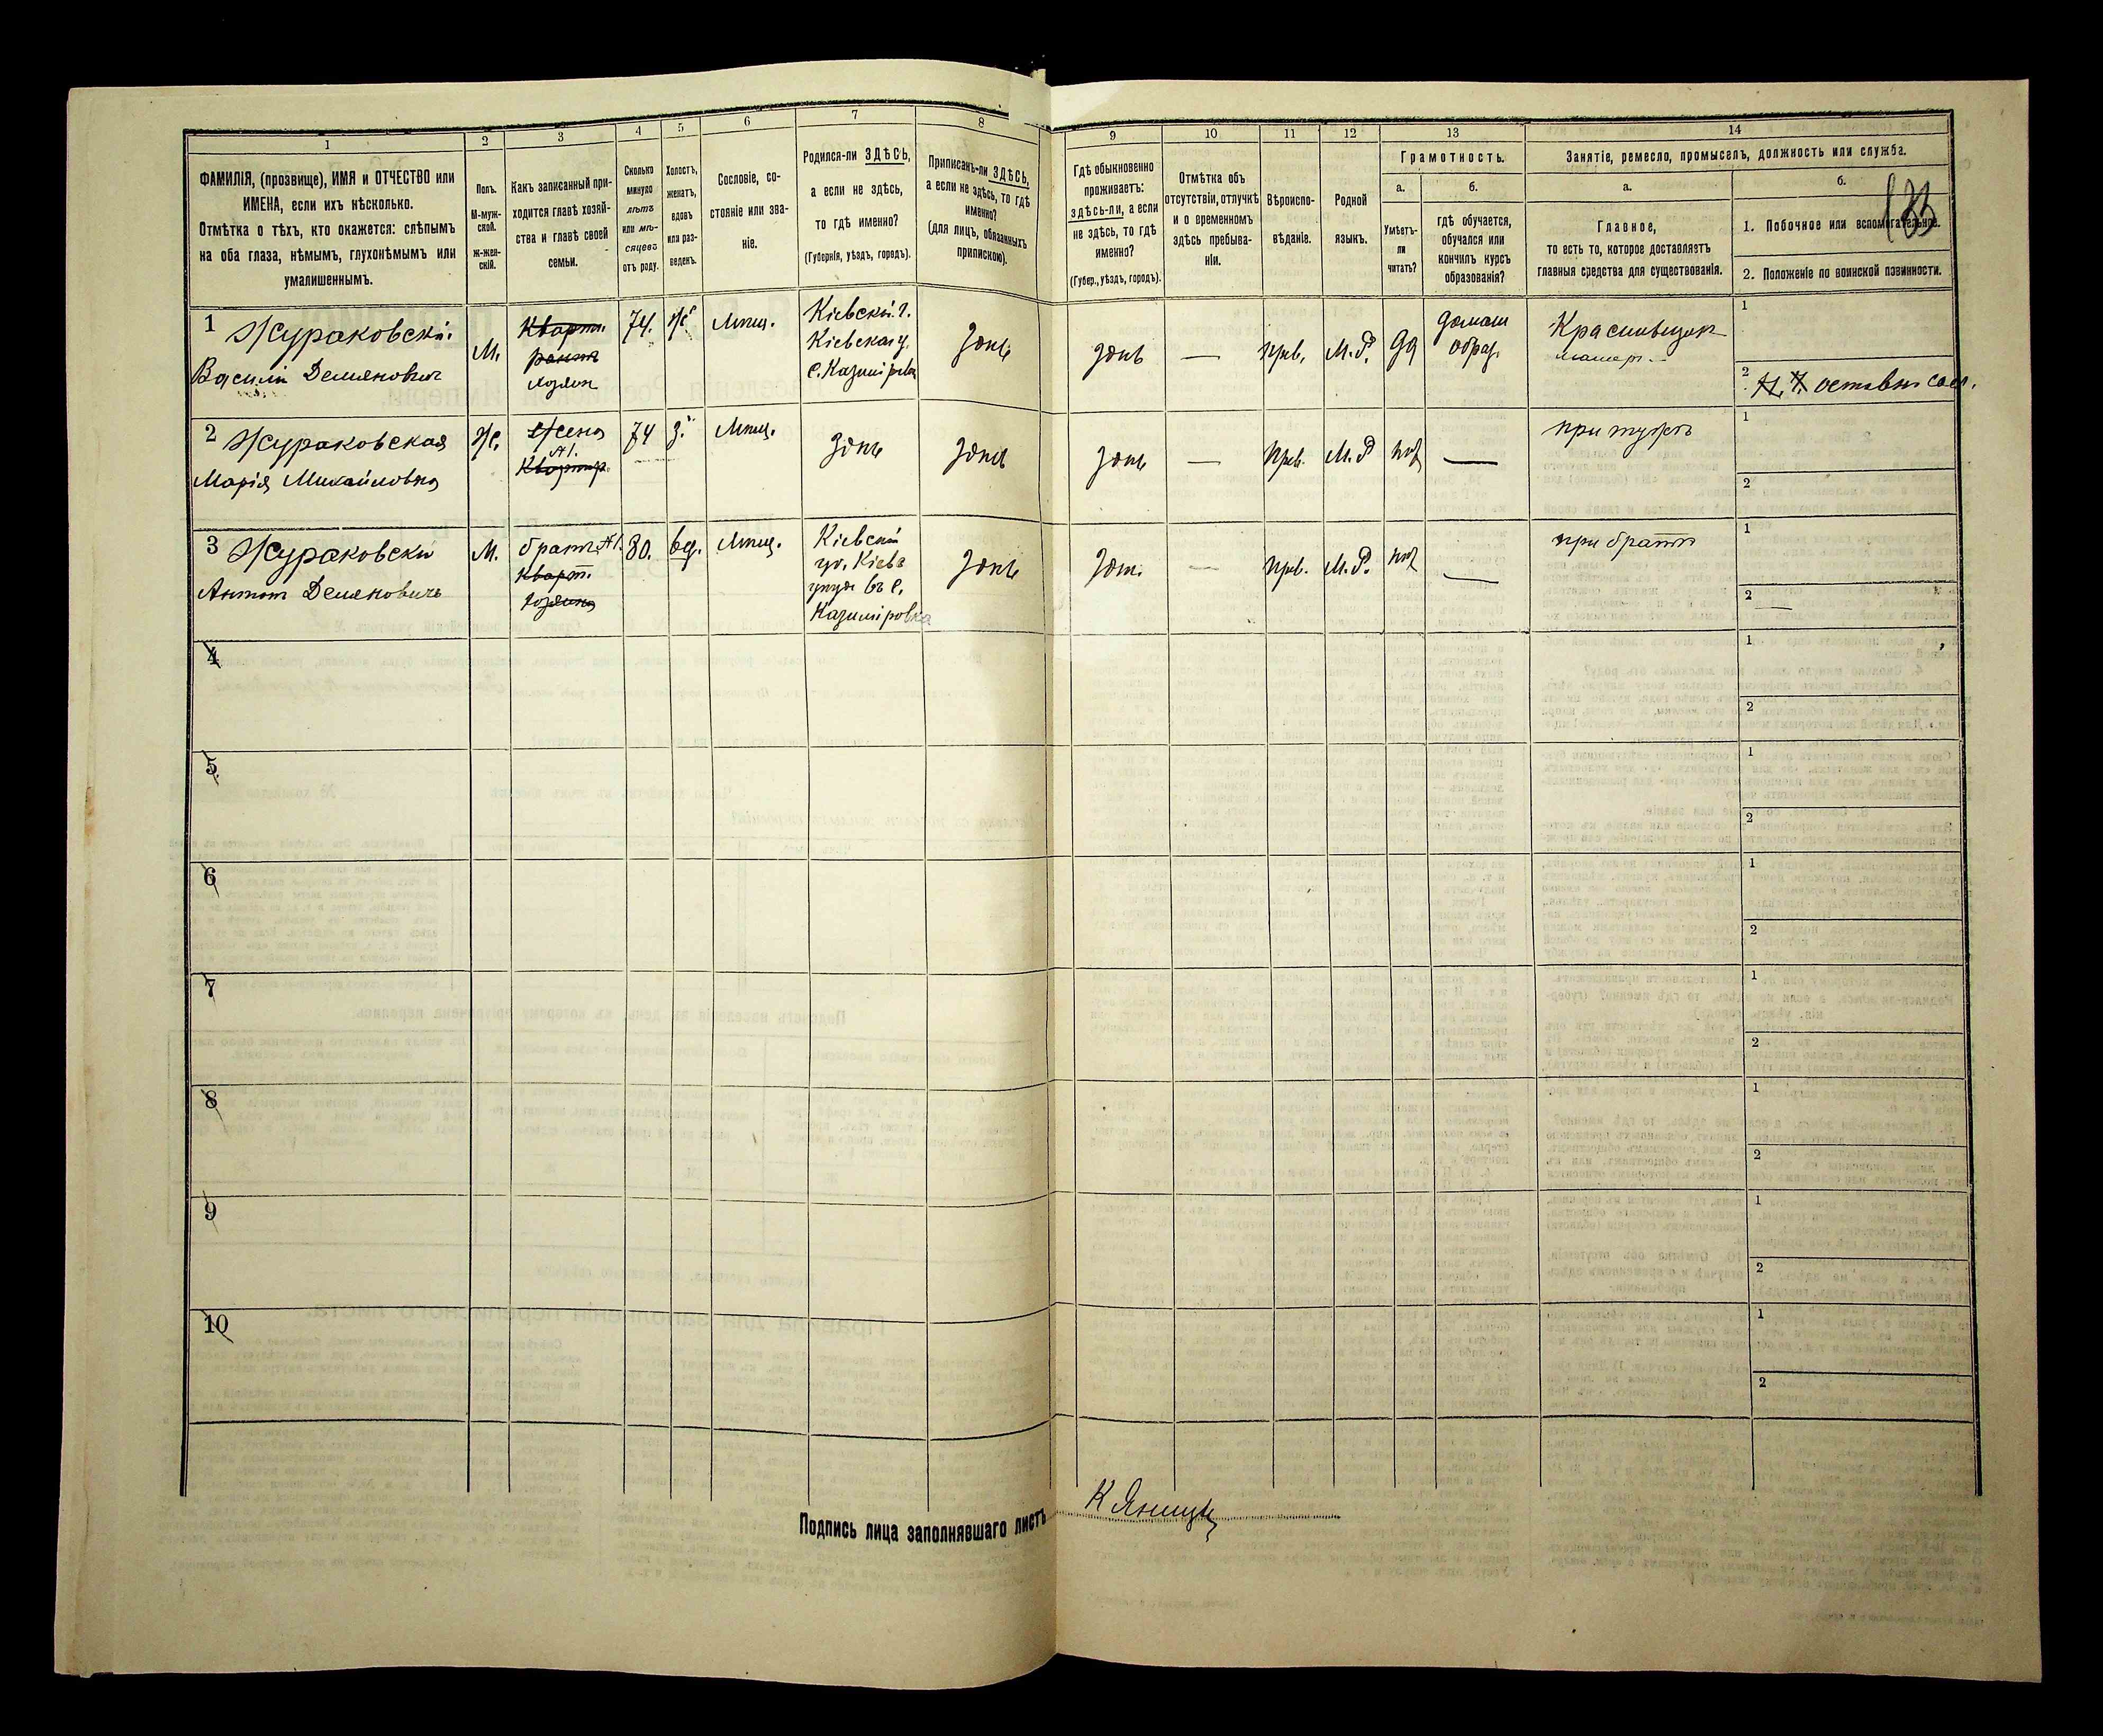 1
2
3
4
5
6
7
8
9
10
11
12
13
14
ФАМИЛІЯ, (прозвище), ИМЯ и ОТЧЕСТВО или
ИМЕНА, если ихъ нѣсколько.
Отмѣтка о тѣхъ, кто окажется: слѣпымъ
на оба глаза, нѣмымъ, глухонѣмымъ или
умалишеннымъ.
Полъ.
М-муж-
ской.
Ж-жен-
скій.
Какъ записанный при-
ходится главѣ хозяй-
ства и главѣ своей
семьи.
Сколько
минуло
лѣтъ
или мѣ-
сяцевъ
отъ роду.
Холостъ,
женатъ,
вдовъ
или раз-
веденъ.
Сословіе, со-
стояніе или зва-
ніе.
Родился-ли ЗДѢСЬ,
а если не здѣсь,
то гдѣ именно?
(Губернія, уѣздъ, городъ).
Приписанъ-ли ЗДѢСЬ,
а если не здѣсь, то гдѣ
именно?
(для лицъ, обязанныхъ
припискою).
Гдѣ обыкновенно
проживаетъ:
здѣсь-ли, а если
не здѣсь, то гдѣ
именно?
(Губер., уѣздъ, городъ).
Отмѣтка объ
отсутствіи, отлучкѣ
и о временномъ
здѣсь пребыва-
ніи.
Вѣроиспо-
вѣданіе.
Родной
языкъ.
Грамотность.
а.
Умѣетъ-
ли
читать?
б.
гдѣ обучается,
обучался или
кончилъ курсъ
образованія?
Занятіе, ремесло, промыселъ, должность или служба.
а.
Главное,
то есть то, которое доставляетъ
главныя средства для существованія.
б.
1. Побочное или вспомогательное.
2. Положеніе по воинской повинности.
1 Жураковскій
Василій Демяновичъ
М.
Кварти
рантъ
хозяин
74.
Же
Мѣщ.
Кіевской г.
Кіевскаго у.
с. Казиміровка
здѣсь
здѣсь
—
прав.
М.Р.
да
домаш
образ.
Красильщик
1
2
отставн. солд.
2 Жураковская
Марія Михайловна
Ж.
Жена
№1.
Квартир.
74
З.
Мѣщ.
здѣсь
здѣсь
здѣсь
—
прав.
М.Р
нѣт
—
при мужѣ
1
2
3 Жураковскій
Антонъ Демяновичъ
М.
братъ №1.
Кварт.
хозяина
80.
вд.
Мѣщ.
Кіевской
гу. Кіевс
уезда въ с.
Казиміровка
здѣсь
здѣс.
—
прав.
М.Р.
нѣт
—
при братѣ
1
2 —
4
1
2
5
1
2
6
1
2
7
1
2
8
1
2
9
1
2
10
1
2
Подпись лица заполнявшаго листъ